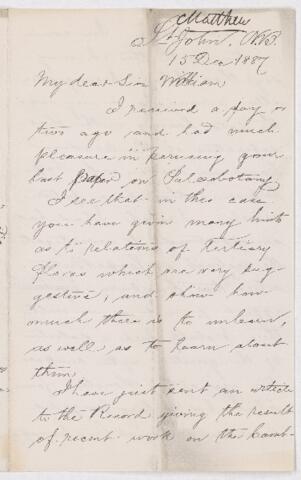 Matthew
St John, N.B.
15 Dec 1887
My dear Sir William,
I received a day or
two ago and had much
pleasure in perusing your
last paper on Palæobotany
I see that in this case
you have given many hints
as to relations of tertiary
floras which are very sug-
gestive, and show how
much there is to unlearn,
as well as to learn about
them.
I have just sent an article
to the Record giving the result
of recent work on the Camb-